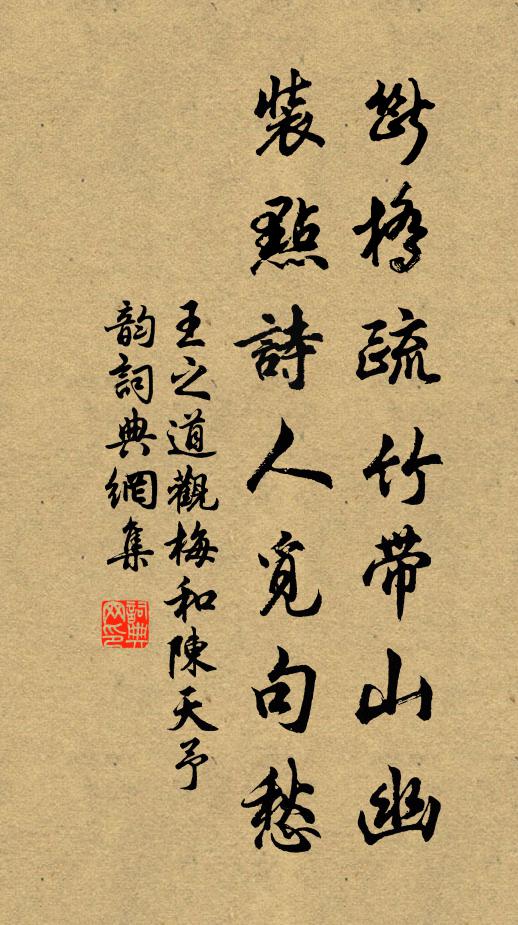 斷橋疏竹帶山幽
裝點詩人覓句愁
王之道觀梅和陳天予
韵詞典網集
詞典网印